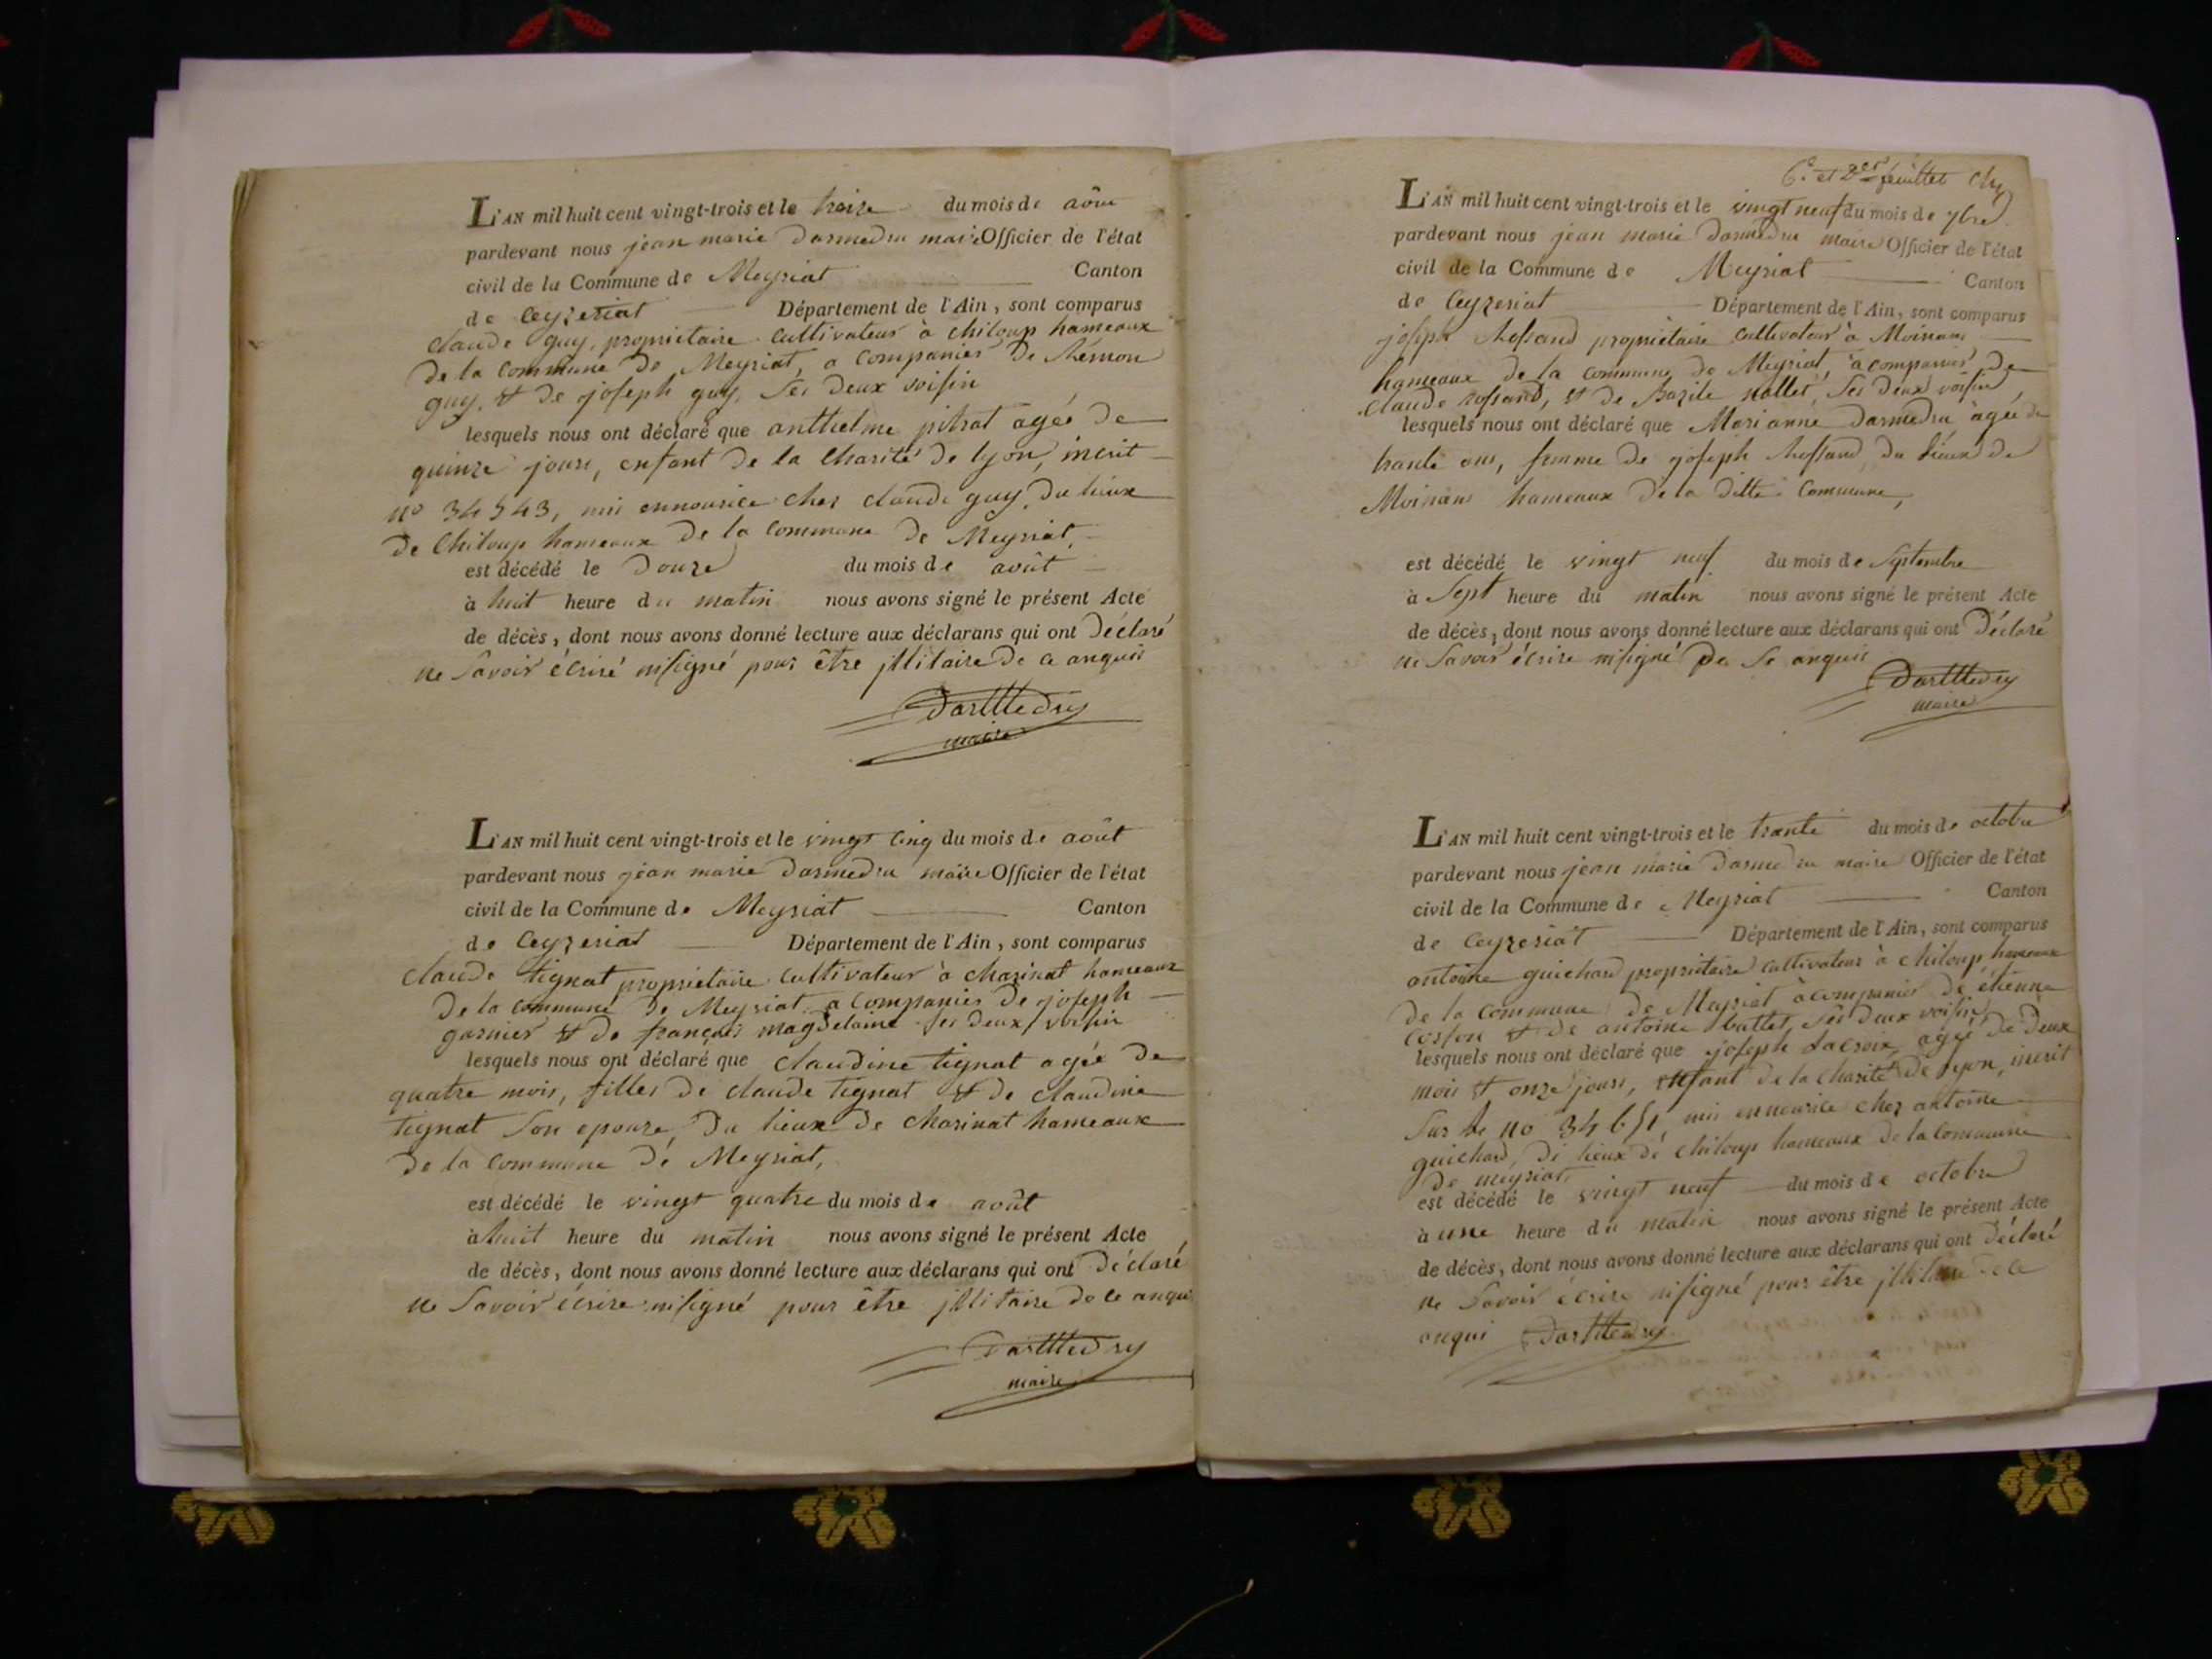 L'AN mil huit cent vingt-trois et le treize du mois de aôut
pardevant nous jean marie darmedru maire Officier de l'état
civil de la Commune de Meyriat Canton
de Ceyzeriat Département de l'Ain, sont comparus
claude guy, proprietaire cultivateur à chiloup hameaux
de la Commune de Meyriat, a Companier de
guy, & de joseph guy, Ses deux voisin
lesquels nous ont déclaré que anthelme pitrat agée de
quinze jours, enfant de la Charité de lyon, incrit
no 34543, mis ennourice chez claude guy, du lieux
de Chiloup hameaux de la Commune de Meyriat,
est décédé le Douze du mois de août
à huit heure du matin nous avons signé le présent Acte
de décès, dont nous avons donné lecture aux déclarans qui ont Déclaré
ne Savoir écrire nisigné pour être jllitaire de ce anquis
Darmedru
maire
L'AN mil huit cent vingt-trois et le vingt Cinq du mois de août
pardevant nous jean marie darmedru maire Officier de l'état
civil de la Commune de Meyriat Canton
de Ceyzeriat Département de l'Ain, sont comparus
claude tignat proprietaire Cultivateur à charinat hameaux
de la Commune de Meyriat a Companier de joseph
garnier & de françois magdelaine Ses deux voisin
lesquels nous ont déclaré que Claudine tignat agée de
quatre mois, filles de claude tignat & de claudine
tignat Son epouze, du lieux de charinat hameaux
de la Commune dé Meyriat,
est décédé le vingt quatre du mois de août
à huit heure du matin nous avons signé le présent Acte
de décès, dont nous avons donné lecture aux déclarans qui ont Déclaré
ne Savoir écrire nisigné pour être jllitaire de ce anquis
Darmedru
maire
6e et Der feuillet
L'AN mil huit cent vingt-trois et le vingt neuf du mois de 7bre
pardevant nous jean marie darmedru maire Officier de l'état
civil de la Commune de Meyriat Canton
de Ceyzeriat Département de l'Ain, sont comparus
joseph proprietaire Cultivateur à Moinans
hameaux de la Commune de Meyriat, à companier de
Claude & de Bazile nallet, Ses deux voisin
lesquels nous ont déclaré que Marianne darmedru àgée de
trante ans, femme de joseph du lieux de
Moinans hameaux de la ditte Commune,
est décédé le vingt neuf du mois de Septembre
à Sept heure du matin nous avons signé le présent Acte
de décès, dont nous avons donné lecture aux déclarans qui ont Déclaré
ne Savoir écrire nisigné de Se anquis
Darmedru
maire
L'AN mil huit cent vingt-trois et le trante du mois de octobre
pardevant nous jean marie darmedru maire Officier de l'état
civil de la Commune de Meyriat Canton
de Ceyzeriat Département de l'Ain, sont comparus
antoine guichard proprietaire cultivateur à chiloup hameaux
de la Commune de Meyriat àcompanier de étienne
& de antoine buttet, Ses deux voisin
lesquels nous ont déclaré que joseph Lacroix, agée de deux
mois & onze jours, enfant de la Charité de lyon, incrit
Sur le no 34651 mis ennourice chez antoine
guichard, di lieux de chiloup hameaux de la Commune
de meyriat,
est décédé le vingt neuf du mois de octobre
à une heure du matin nous avons signé le présent Acte
de décès, dont nous avons donné lecture aux déclarans qui ont Déclaré
ne Savoir écrire nisigné pour être jllitaire de ce
anqui Darmedru